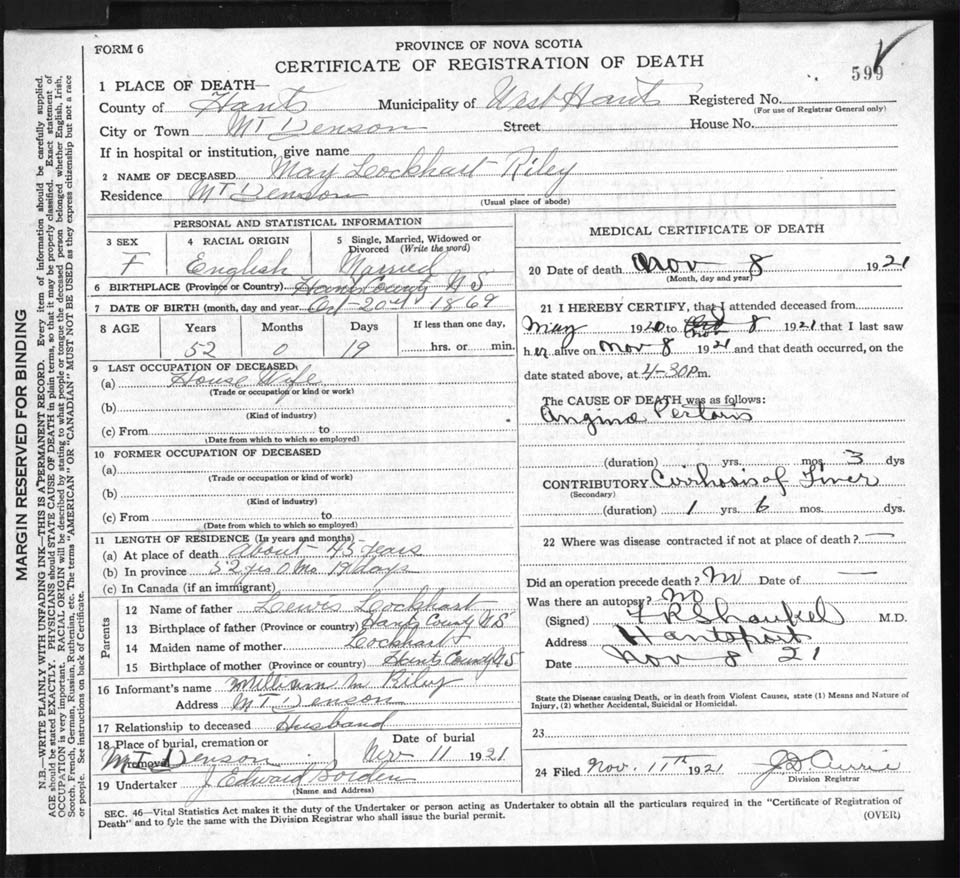 FORM 6
PROVINCE OF NOVA SCOTIA
CERTIFICATE OF REGISTRATION OF DEATH
599
1 PLACE OF DEATH—
County of Hants Municipality of West Hants Registered No.
(For use of Registrar General only)
City or Town Mt Denson Street House No.
If in hospital or institution, give name
2 NAME OF DECEASED May Lockhart Riley
Residence Mt Denson
(Usual place of abode)
PERSONAL AND STATISTICAL INFORMATION
3 SEX 4 RACIAL ORIGIN 5 Single, Married, Widowed or Divorced (Write the word)
F English Married
6 BIRTHPLACE (Province or Country) Hants County N S
7 DATE OF BIRTH (month, day and year Oct 20th 1869
8 AGE Years Months Days If less than one day,
52 0 19 hrs. or min.
9 LAST OCCUPATION OF DECEASED
(a) House Wife
(Trade or occupation or kind or work)
(b)
(Kind of industry)
(c) From to
(Date from which to which so employed)
10 FORMER OCCUPATION OF DECEASED
(a)
(Trade or occupation or kind of work)
(b)
(Kind of industry)
(c) From to
(Date from which to which so employed)
11 LENGTH OF RESIDENCE (In years and months)
(a) At place of death about 45 years
(b) In province 52 yrs 0 mo 19 days
(c) In Canada (if an immigrant)
Parents
12 Name of father Lewis Lockhart
13 Birthplace of father (Province or country) Hants County N.S
14 Maiden name of mother Lockhart
15 Birthplace of mother (Province or country) Hants County N S
16 Informant's name William M Riley
Address Mt Denson
17 Relationship to deceased Husband
18 Place of burial, cremation or removal Date of burial
Mt Denson Nov 11 1921
19 Undertaker J. Edward Borden
(Name and Address)
MEDICAL CERTIFICATE OF DEATH
20 Date of death Nov 8 1921
(Month, day and year)
21 I HEREBY CERTIFY, that I attended deceased from
May 1920 to Nov 8 1921 that I last saw
h er alive on Nov 8 1921 and that death occurred, on the
date stated above, at 4-30 Pm.
The CAUSE OF DEATH was as follows:
Angina Pectoris
(duration) yrs. mos. 3 dys
CONTRIBUTORY Cirrhosis of Liver
(Secondary)
(duration) 1 yrs. 6 mos. dys.
22 Where was disease contracted if not at place of death? —
Did an operation precede death? No Date of —
Was there an autopsy? No
(Signed) M.D.
Address Hantsport
Date Nov 8 21
State the Disease causing Death, or in death from Violent Causes, state (1) Means and Nature of
Injury, (2) whether Accidental, Suicidal or Homicidal.
23
24 Filed Nov. 11th 1921 J D Currie
Division Registrar
SEC. 46—Vital Statistics Act makes it the duty of the Undertaker or person acting as Undertaker to obtain all the particulars required in the "Certificate of Registration of
Death" and to fyle the same with the Division Registrar who shall issue the burial permit.
(OVER)
MARGIN RESERVED FOR BINDING
N.B.—WRITE PLAINLY WITH UNFADING INK—THIS IS A PERMANENT RECORD. Every item of information should be carefully supplied.
AGE should be stated EXACTLY. PHYSICIANS should STATE CAUSE OF DEATH in plain terms, so that it may be properly classified. Exact statement of
OCCUPATION is very important. RACIAL ORIGIN will be described by stating to what people or tongue the deceased person belonged whether English, Irish,
Scotch, French, German, Russian, Ruthenian, etc. The terms "AMERICAN" OR "CANADIAN" MUST NOT BE USED as they express citizenship but not a race
or people. See instructions on back of Certificate.